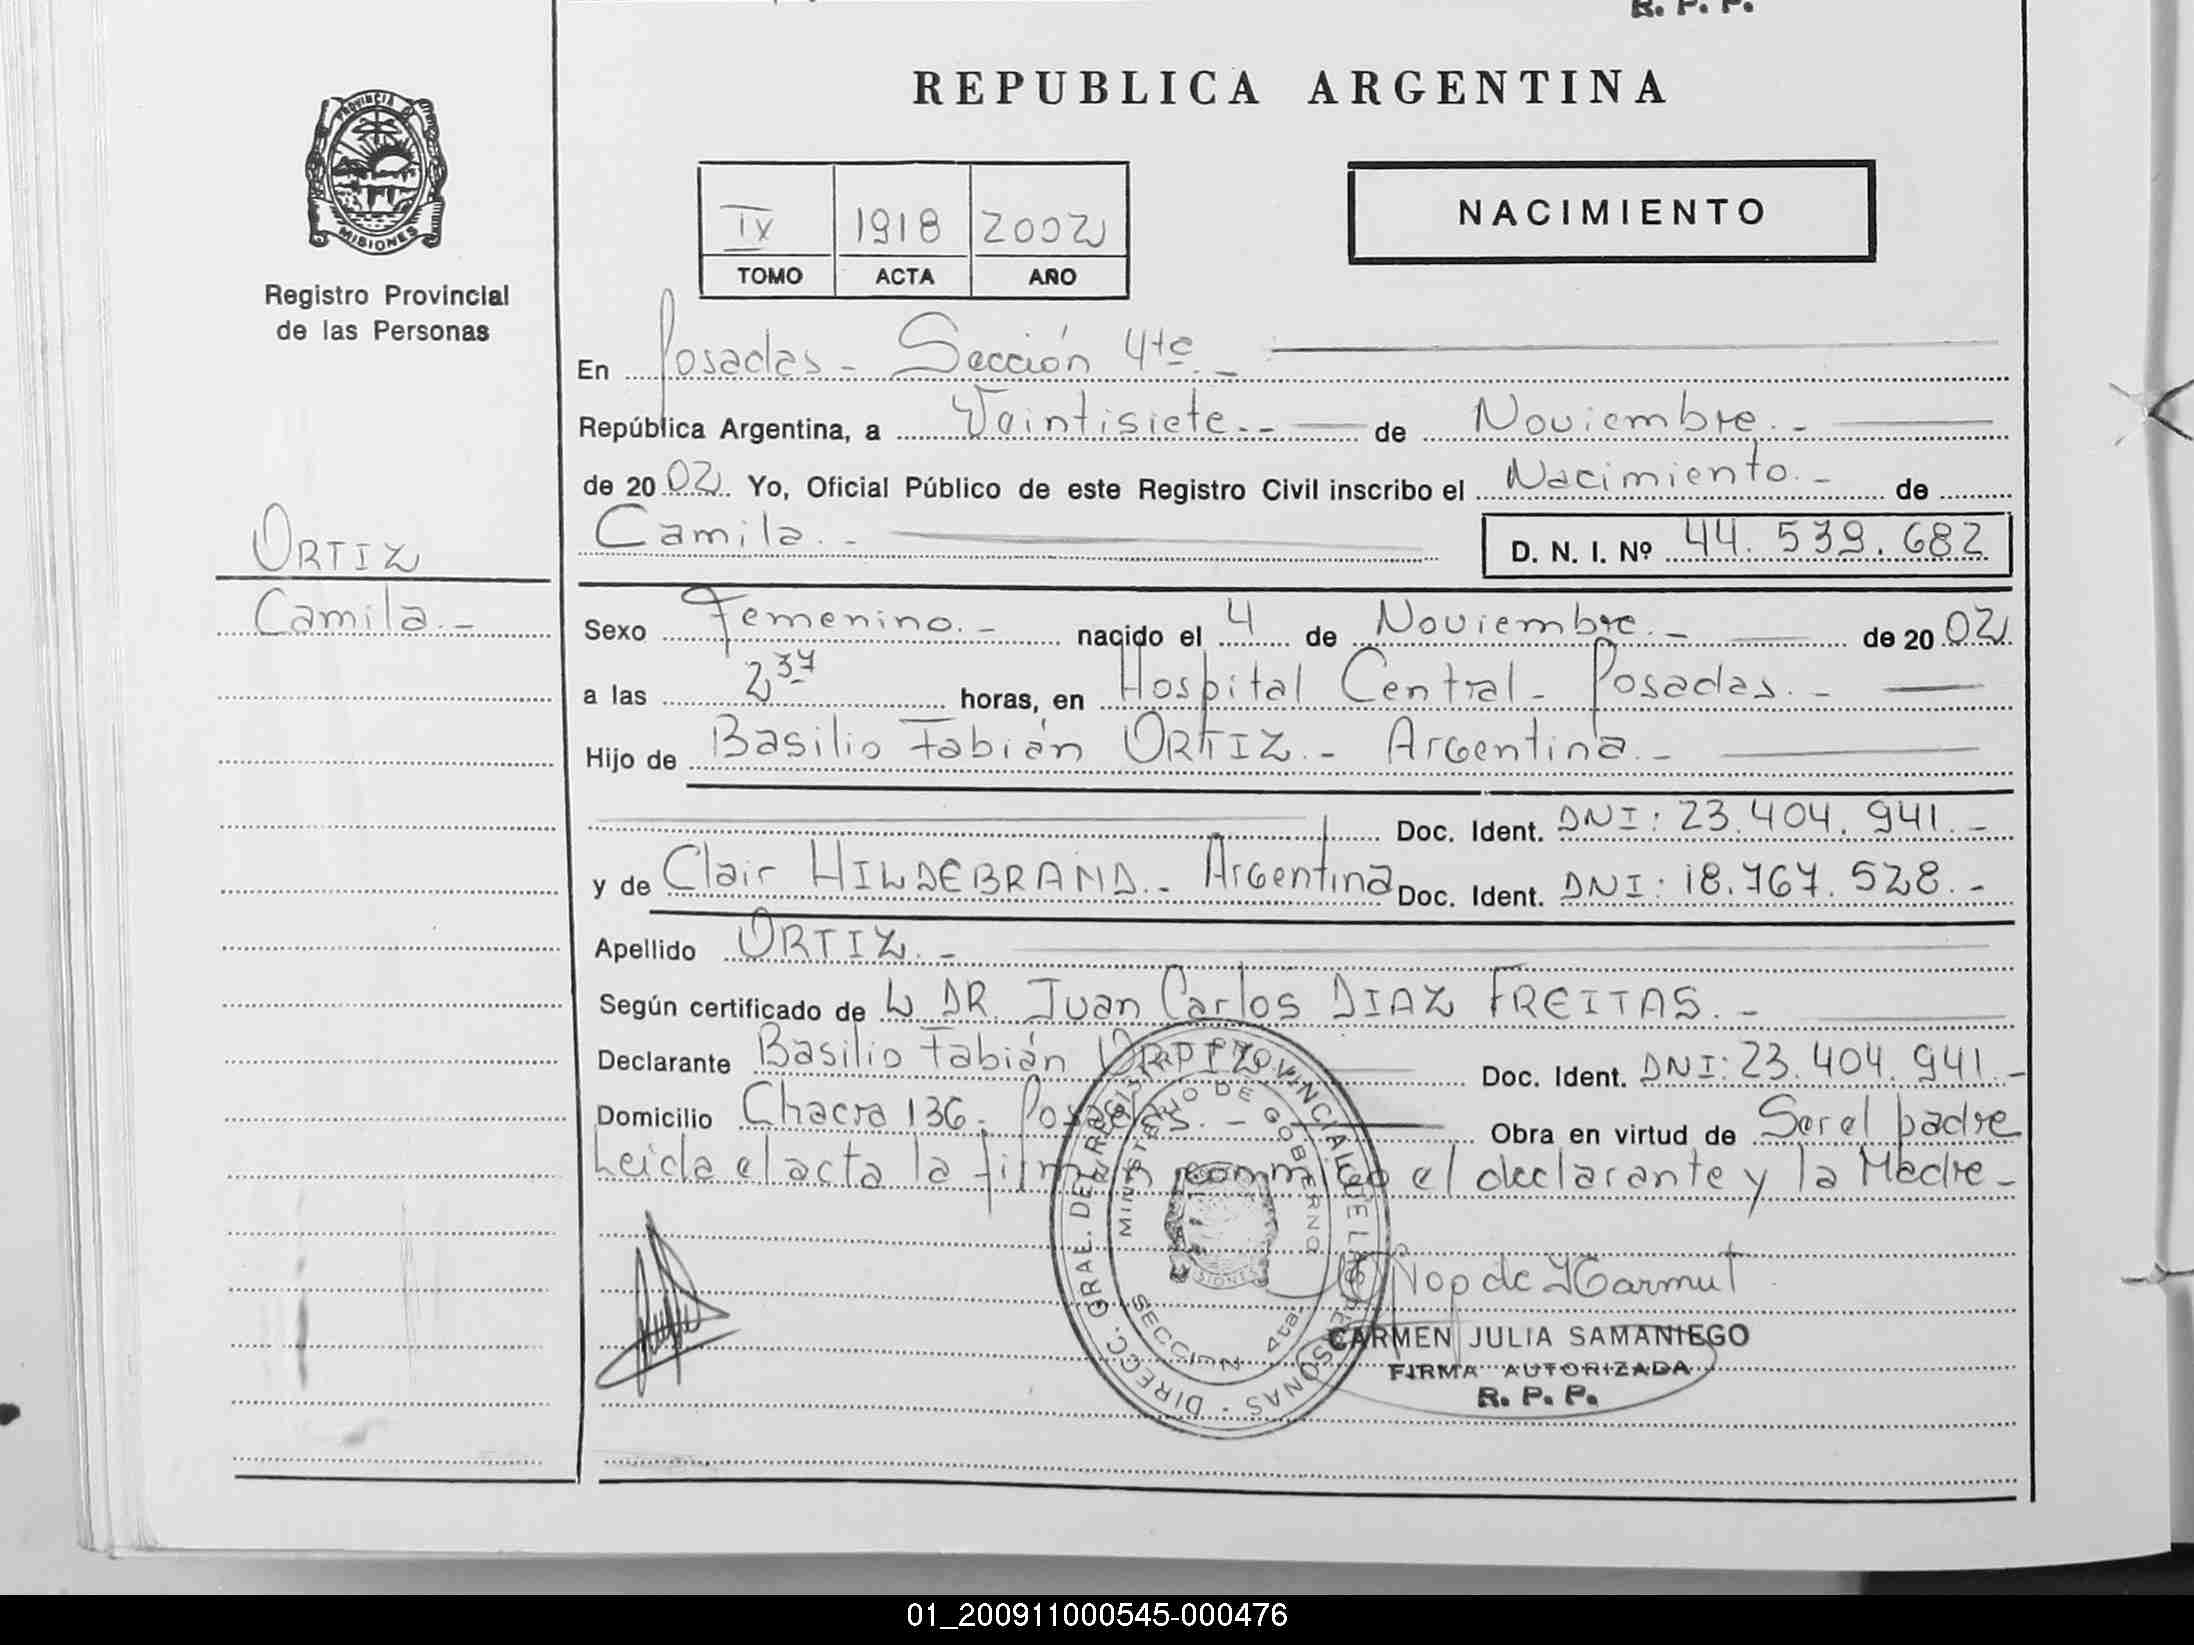 R. P. P.
REPUBLICA ARGENTINA
PROVINCIA DE
MISIONES
Registro Provincial
de las Personas
IX 1918 2002
TOMO ACTA AÑO
NACIMIENTO
En Posadas - Sección 4ta. -
República Argentina, a Veintisiete. - de Noviembre. -
de 2002. Yo, Oficial Público de este Registro Civil inscribo el Nacimiento. - de
Camila. - D. N. I. Nº 44.539.682
ORTIZ
Camila. -
Sexo Femenino. - nacido el 4 de Noviembre. - de 2002.
a las 2 37 horas, en Hospital Central - Posadas. -
Hijo de Basilio Fabián ORTIZ. - Argentina. -
Doc. Ident. DNI: 23.404.941. -
y de Clair HILDEBRAND. - Argentina Doc. Ident. DNI: 18.767.528. -
Apellido ORTIZ. -
Según certificado de L DR. Juan Carlos DIAZ FREITAS. -
Declarante Basilio Fabián ORTIZ Doc. Ident. DNI: 23.404.941. -
Domicilio Chacra 136 - Posadas. - Obra en virtud de Ser el padre
Leida el acta la firman conmigo el declarante y la Madre -
DIRECC. GRAL. DEL REGISTRO PROVINCIAL DE LAS PERSONAS -
MINISTERIO DE GOBIERNO
MISIONES
SECCION 4ta.
CARMEN JULIA SAMANIEGO
FIRMA AUTORIZADA
R. P. P.
01_200911000545-000476